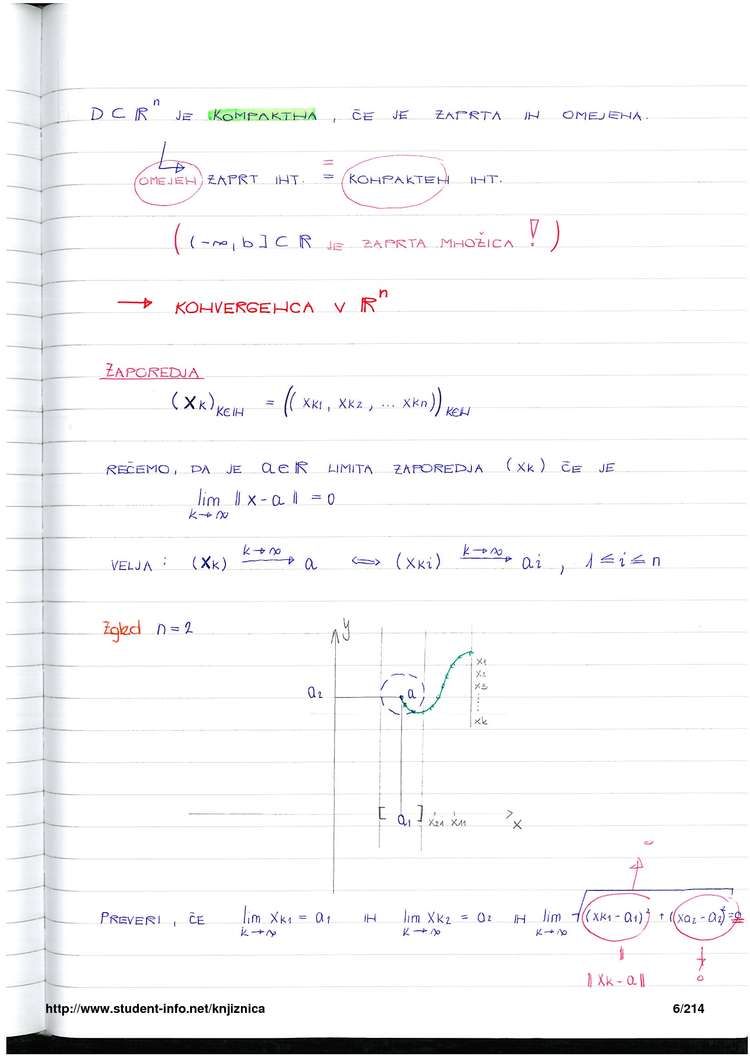 D ⊂ ℝⁿ JE KOMPAKTNA, ČE JE ZAPRTA IN OMEJENA.
OMEJEN ZAPRT INT. = KOMPAKTEN INT.
((-∞, b] ⊂ ℝ JE ZAPRTA MNOŽICA!)
→ KONVERGENCA V ℝⁿ
ZAPOREDJA
(xk)k∈ℕ = ((xk1, xk2, ... xkn))k∈ℕ
REČEMO, DA JE a∈ℝ LIMITA ZAPOREDJA (xk) ČE JE
lim ‖x-a‖ = 0
k→∞
VELJA: (xk) k→∞ → a ⟺ (xki) k→∞ → ai, 1≤i≤n
Zgled n=2
y
x1
x2
x3
a2 a
xk
[ a1 ] x21 x11 x
PREVERI, ČE lim xk1 = a1 IN lim xk2 = a2 IN lim √((xk1-a1)² + (xa2-a2)²) = 0
k→∞ k→∞ k→∞
‖xk-a‖ 0
http://www.student-info.net/knjiznica 6/214